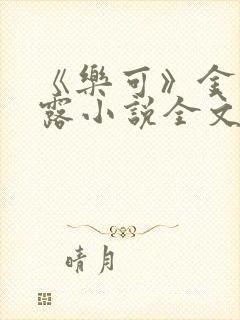 《樂可》金
露小說全文
晴月